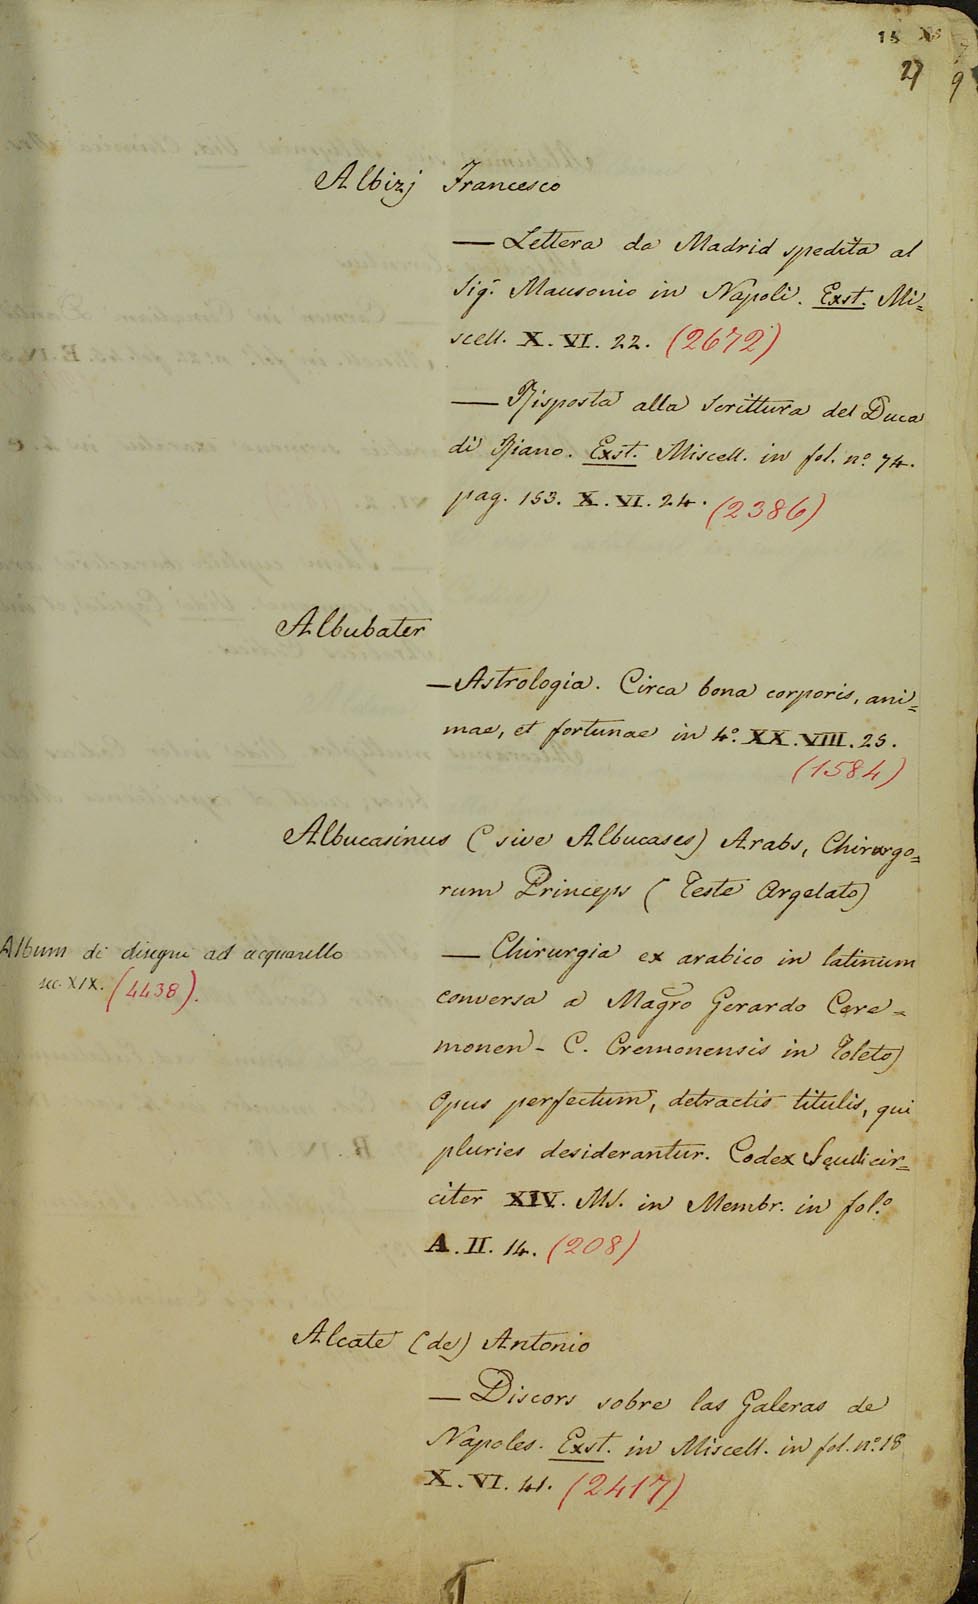 15
27 9
Albizj Francesco
— Lettera da Madrid spedita al
Sig.r Mausonio in Napoli. Exst. Mi=
scell. X. VI. 22. (2672)
— Risposta alla scrittura del Duca
di Riano. Exst. Miscell. in fol. n.o 74.
pag. 153. X. VI. 24. (2386)
Albubater
— Astrologia. Circa bona corporis, ani=
mae, et fortunae in 4.o XX. VIII. 25.
(1584)
Albucasinus (sive Albucases) Arabs, Chirurgo=
rum Princeps (Teste Argelato)
Album di disegni ad acquarello
sec. XIX. (4438).
— Chirurgia ex arabico in latinum
conversa a Magro Gerardo Cere=
monen - C. Cremonensis in Toleto)
Opus perfectum, detractis titulis, qui
pluries desiderantur. Codex Seculi cir=
citer XIV. MS. in Membr. in fol.o
A. II. 14. (208)
Alcate (de) Antonio
— Discors sobre las Galeras de
Napoles. Exst. in Miscell. in fol. n.o 18
X. VI. 41. (2417)